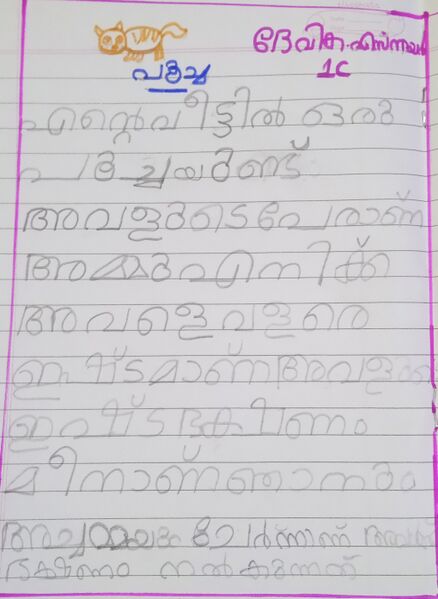 ദേവിക എസ് നായർ
1C
പൂച്ച
എന്റെ വീട്ടിൽ ഒരു
പൂച്ചയുണ്ട്
അവളുടെ പേരാണ്
അമ്മു എനിക്ക്
അവളെ വളരെ
ഇഷ്ടമാണ് അവളുടെ
ഇഷ്ട ഭക്ഷണം
മീനാണ് ഞാനും
അച്ഛനും ചേർന്നാണ്
ഭക്ഷണം നൽകുന്നത്